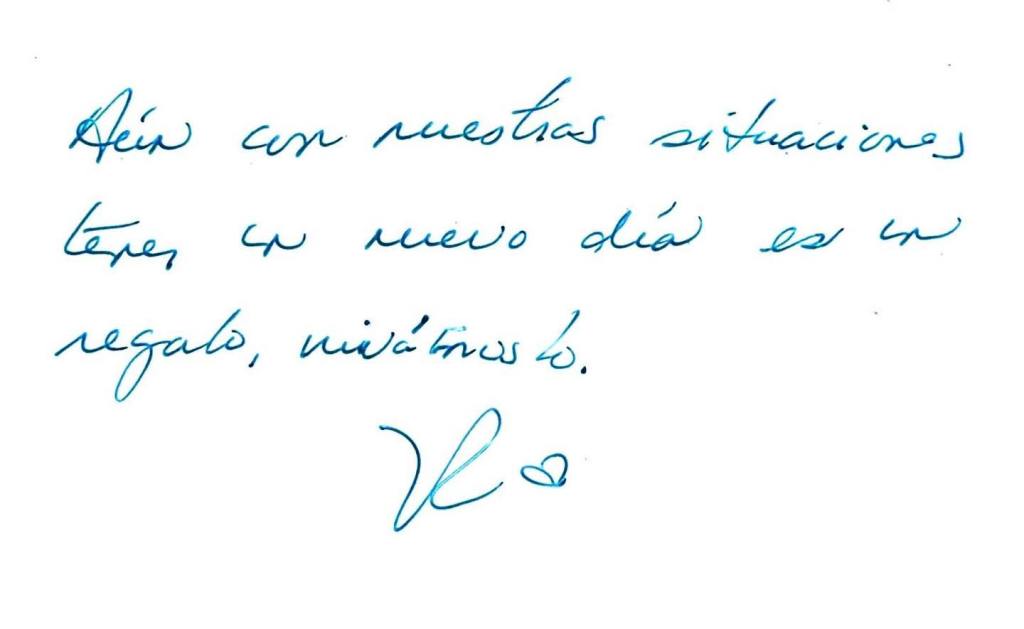 Aún con nuestras situaciones
tener un nuevo día es un
regalo, vivámoslo.